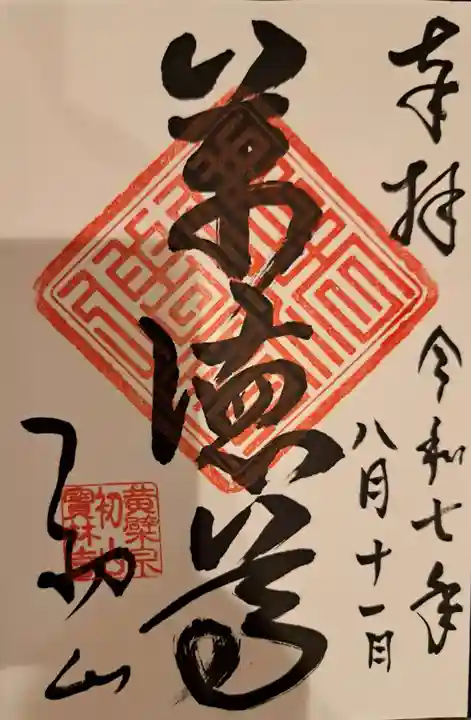 奉拝 令和七年
八月十一日
萬徳尊
初山
黄檗宗
初山
寶林寺